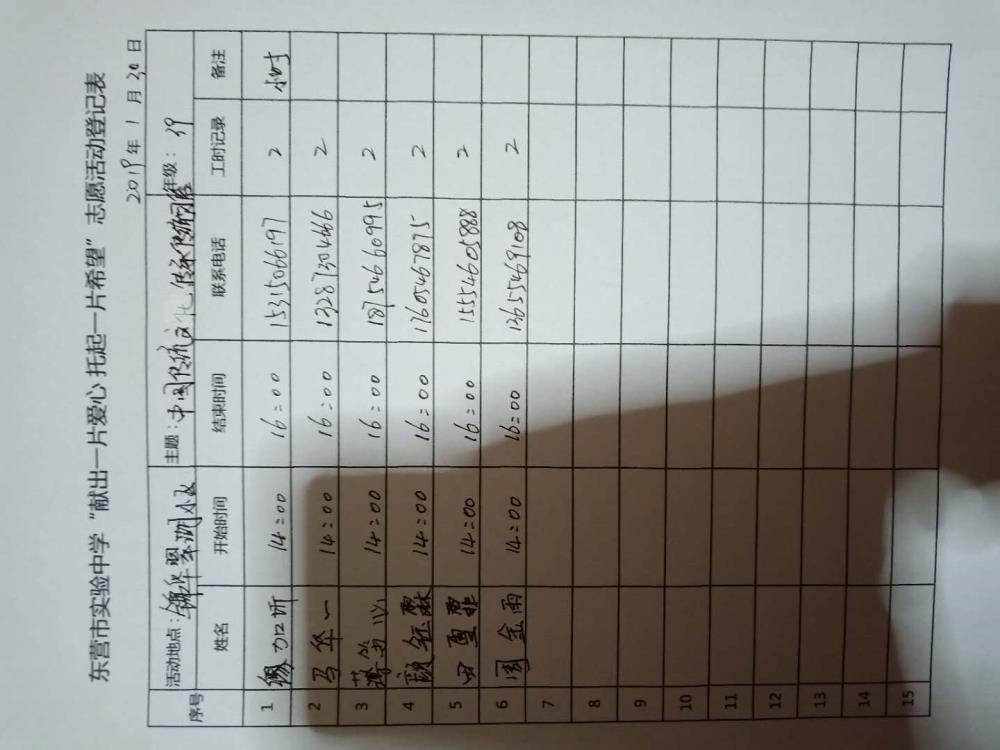 东营市实验中学“献出一片爱心 托起一片希望”志愿活动登记表
2019年 1 月 30 日
活动地点：锦华翠湖小区 主题：中国传统文化 年级： 39
序号 姓名 开始时间 结束时间 联系电话 工时记录 备注
1 14:00 16:00 15315066197 2 小时
2 马华一 14:00 16:00 2
3 薄笛心 14:00 16:00 18754660995 2
4 顾钰霖 14:00 16:00 17605467875 2
5 田雪霏 14:00 16:00 15554605888 2
6 周金雨 14:00 16:00 13655469108 2
7
8
9
10
11
12
13
14
15